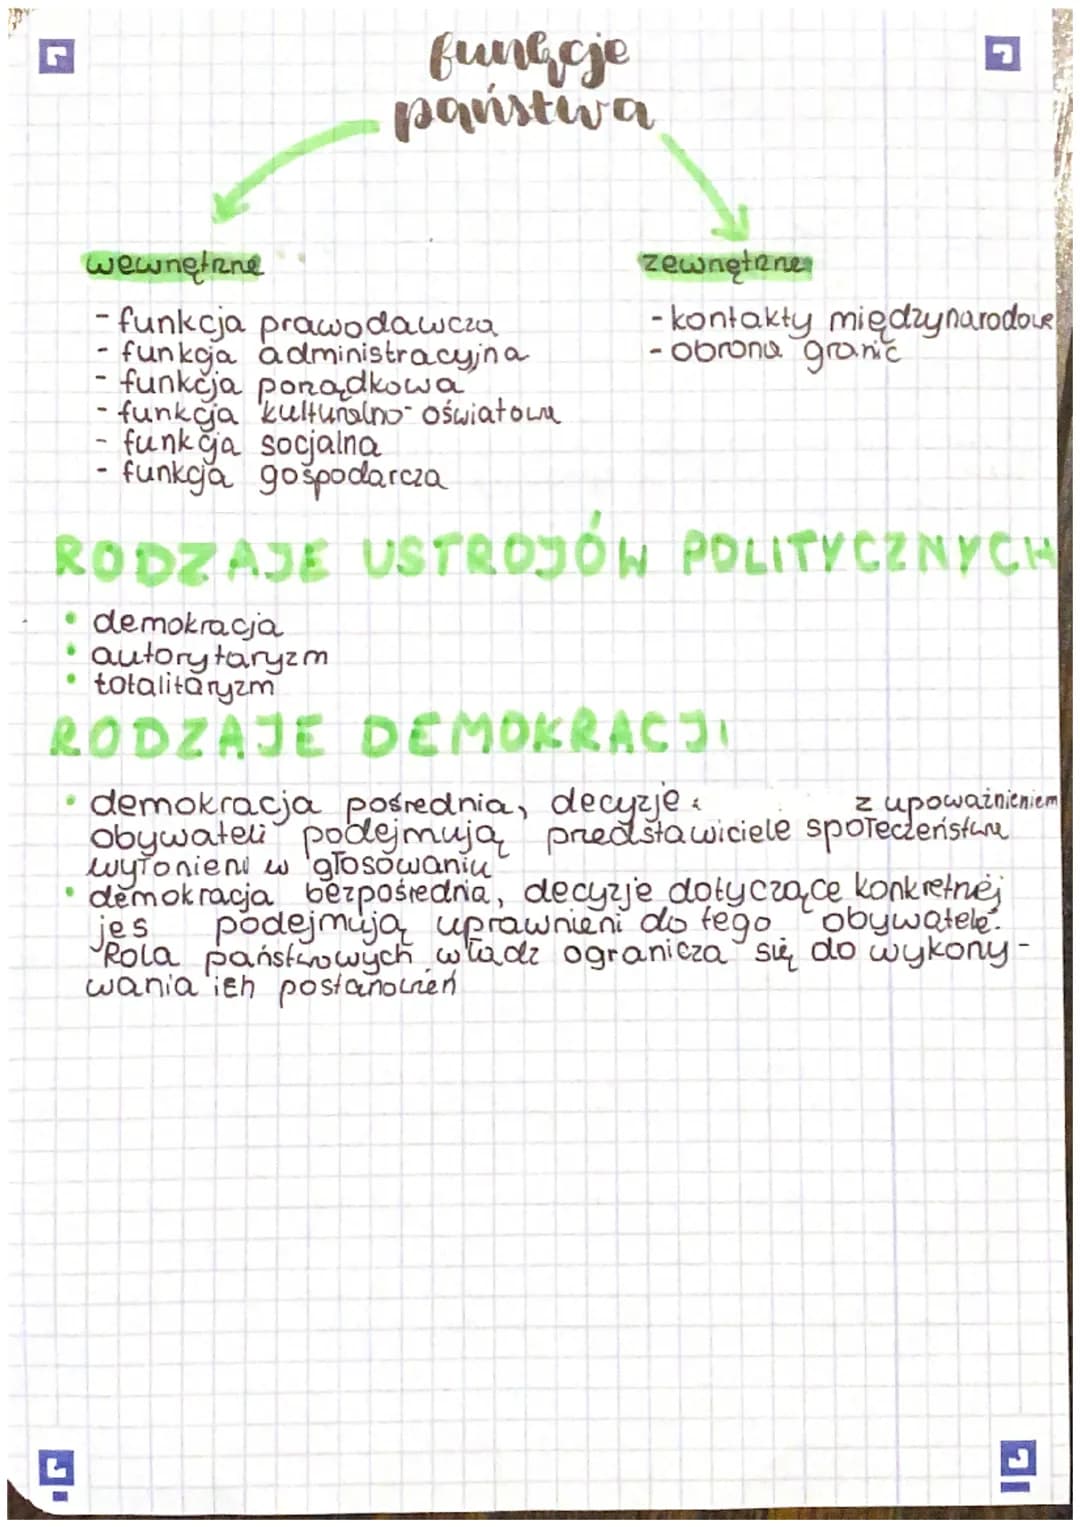 funkcje
państwa
wewnętrzne
zewnętrzne
- funkcja prawodawcza
- funkcja administracyjna
- funkcja porządkowa
- funkcja kulturalno-oświatowa
- funkcja socjalna
- funkcja gospodarcza
- kontakty międzynarodowe
- obrona granic
RODZAJE USTROJÓW POLITYCZNYCH
• demokracja
• autorytaryzm
• totalitaryzm
RODZAJE DEMOKRACJI
• demokracja pośrednia, decyzje z upoważnieniem
obywateli podejmują przedstawiciele społeczeństwa
wyłonieni w głosowaniu
• demokracja bezpośrednia, decyzje dotyczące konkretnej
jes podejmują uprawnieni do tego obywatele.
Rola państwowych władz ogranicza się do wykony-
wania ich postanowień